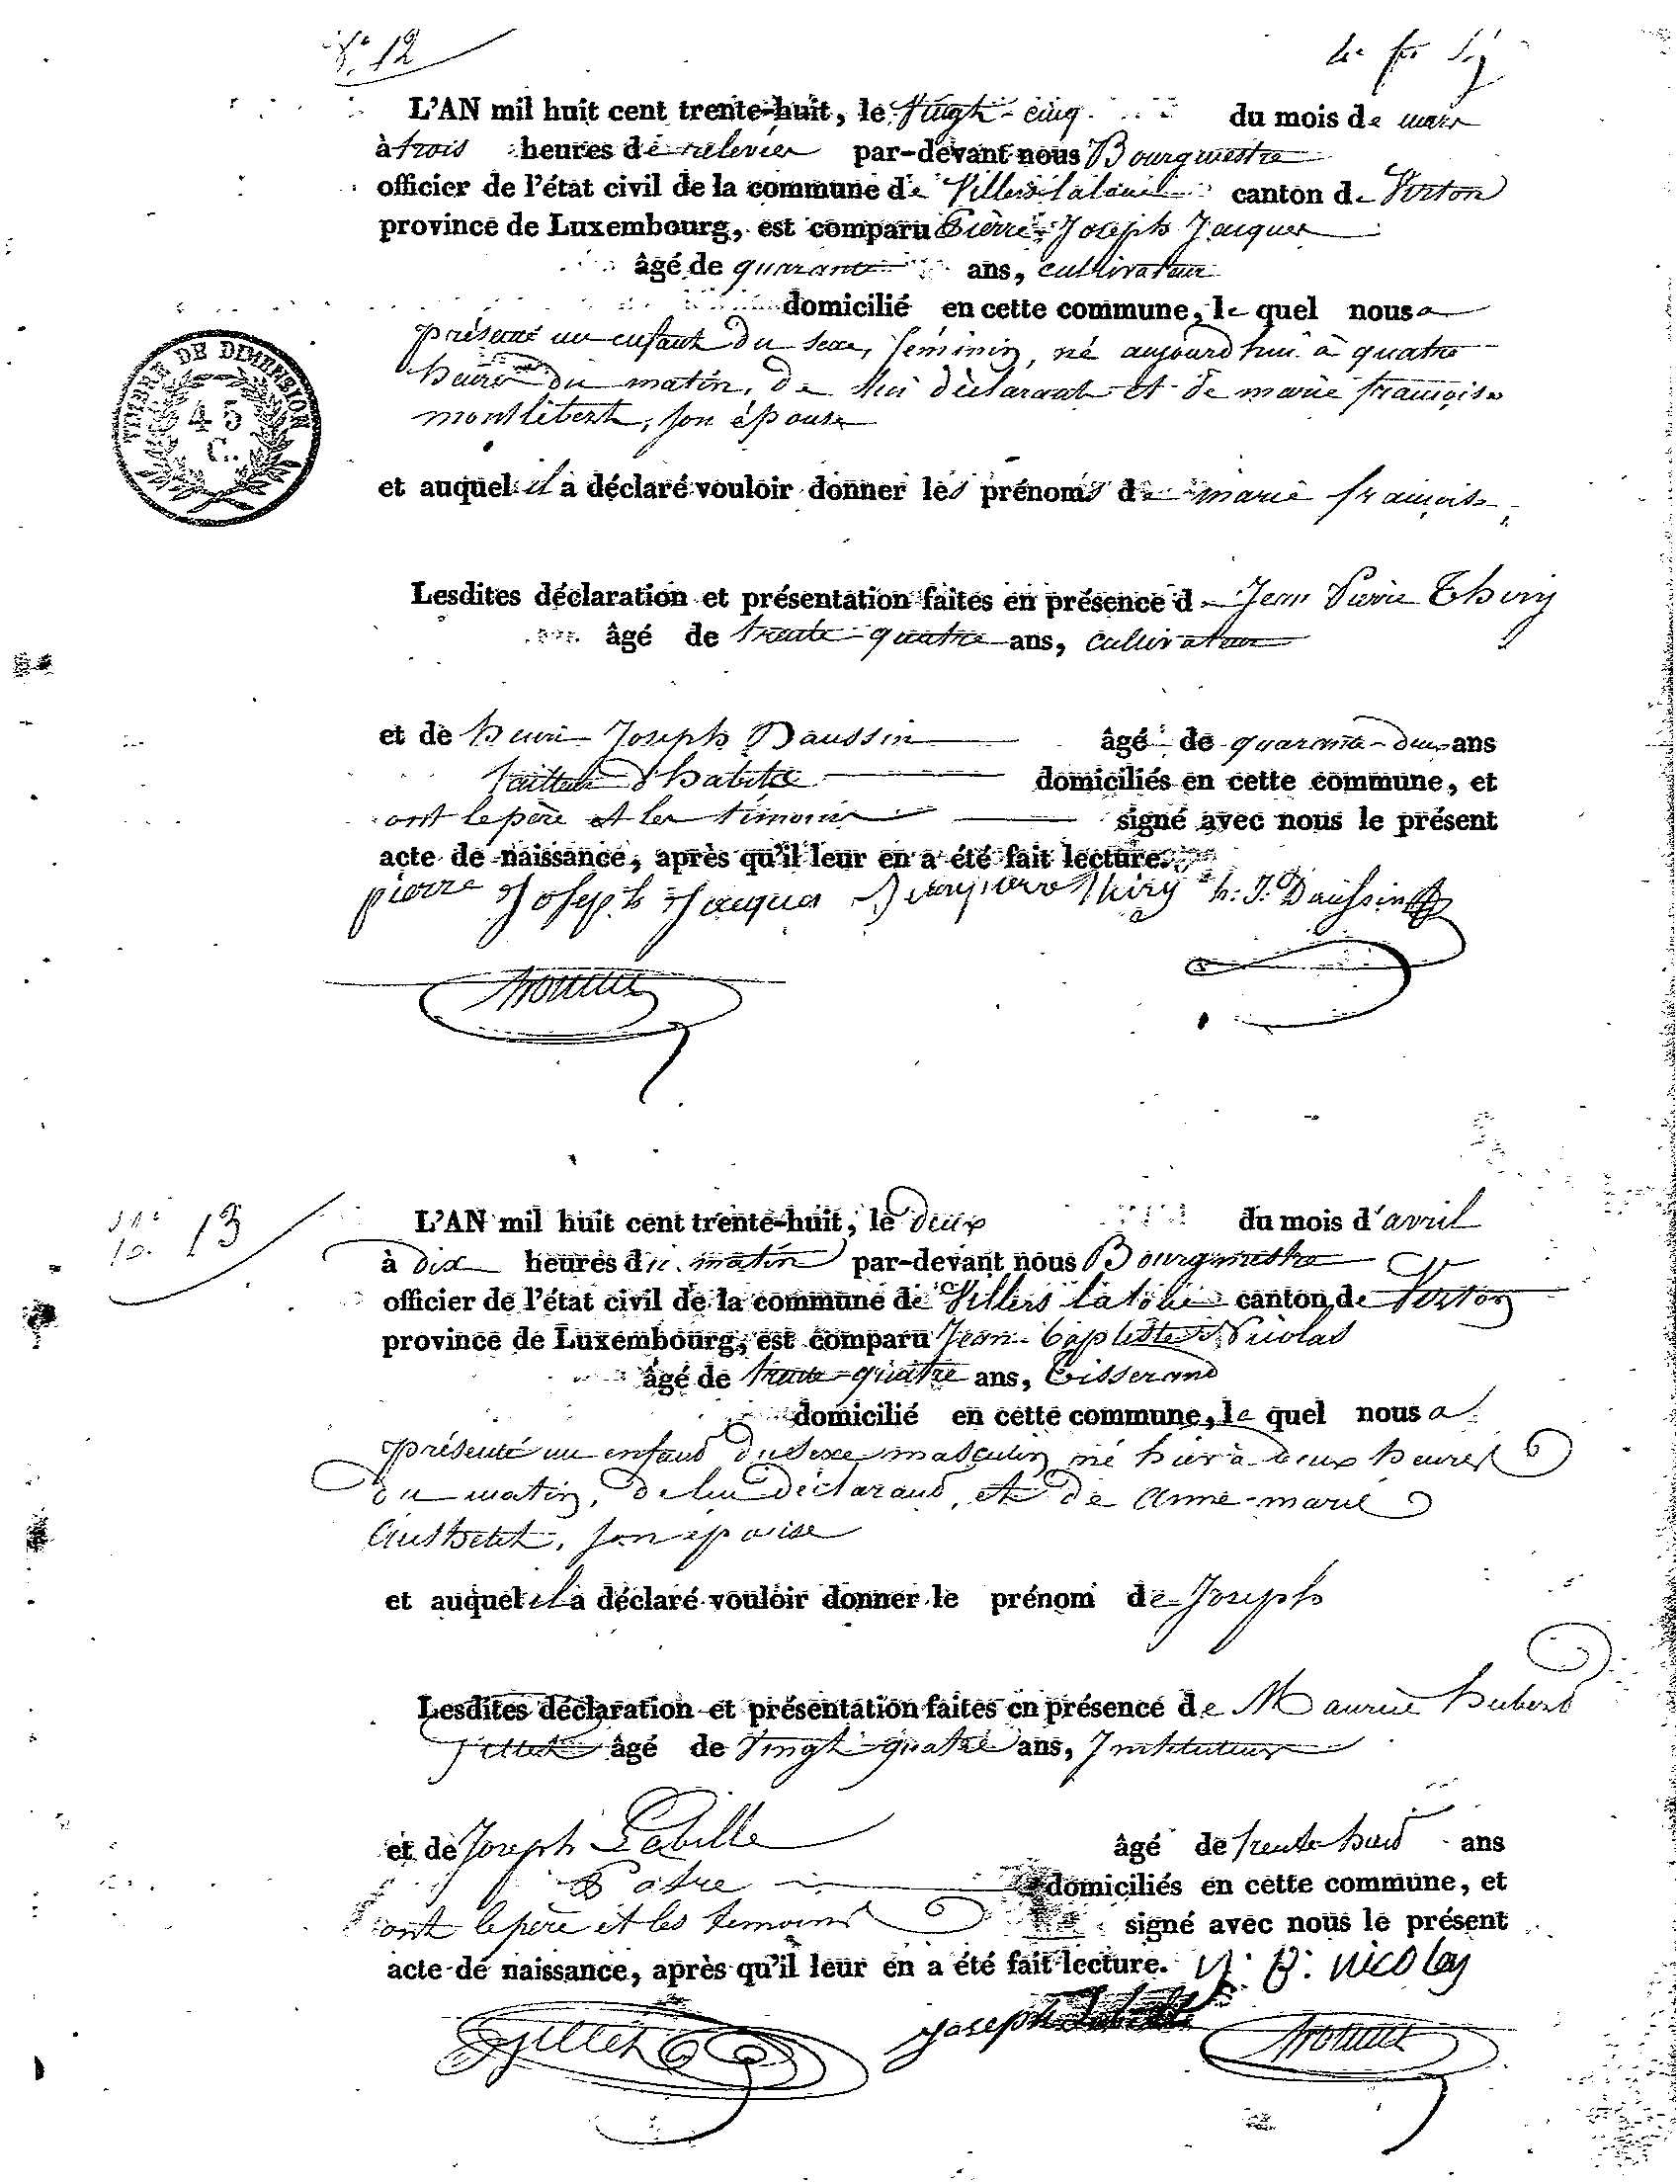 N° 12
L'AN mil huit cent trente-huit, le Vingt-cinq du mois de mars
à trois heures de relevée par-devant nous Bourgmestre
officier de l'état civil de la commune de Villers-laloue canton de Virton
province de Luxembourg, est comparu Pierre-Joseph Jacques
âgé de quarante ans, cultivateur
domicilié en cette commune, le quel nous a
présenté un enfant du sexe, féminin, né aujourd'hui à quatre
heures du matin, de lui déclarant et de marie françoise
montlibert, son épouse
TIMBRE DE DIMENSION
45
C.
et auquel il a déclaré vouloir donner les prénoms de marie françoise
Lesdites déclaration et présentation faites en présence de Jean Pierre Thiry
âgé de trente-quatre ans, cultivateur
et de henri Joseph Daussin âgé de quarante-deux ans
tailleur d'habits domiciliés en cette commune, et
ont le père et les témoins signé avec nous le présent
acte de naissance, après qu'il leur en a été fait lecture.
pierre Joseph Jacques Jean pierre Thiry h. J. Daussin
N° 13
L'AN mil huit cent trente-huit, le deux du mois d'avril
à dix heures du matin par-devant nous Bourgmestre
officier de l'état civil de la commune de Villers laloue canton de Virton
province de Luxembourg, est comparu Jean-baptiste Nicolas
âgé de trente-quatre ans, Tisserand
domicilié en cette commune, le quel nous a
présenté un enfant du sexe masculin né hier à deux heures
du matin, de lui déclarant, et de Anne-marie
son épouse
et auquel il a déclaré vouloir donner le prénom de Joseph
Lesdites déclaration et présentation faites en présence de Maurice hubert
Gillet âgé de Vingt-quatre ans, Instituteur
et de Joseph Labille âgé de trente-huit ans
Patre domiciliés en cette commune, et
ont le père et les temoins signé avec nous le présent
acte de naissance, après qu'il leur en a été fait lecture. J. B. nicolas
Gillet Joseph Labille